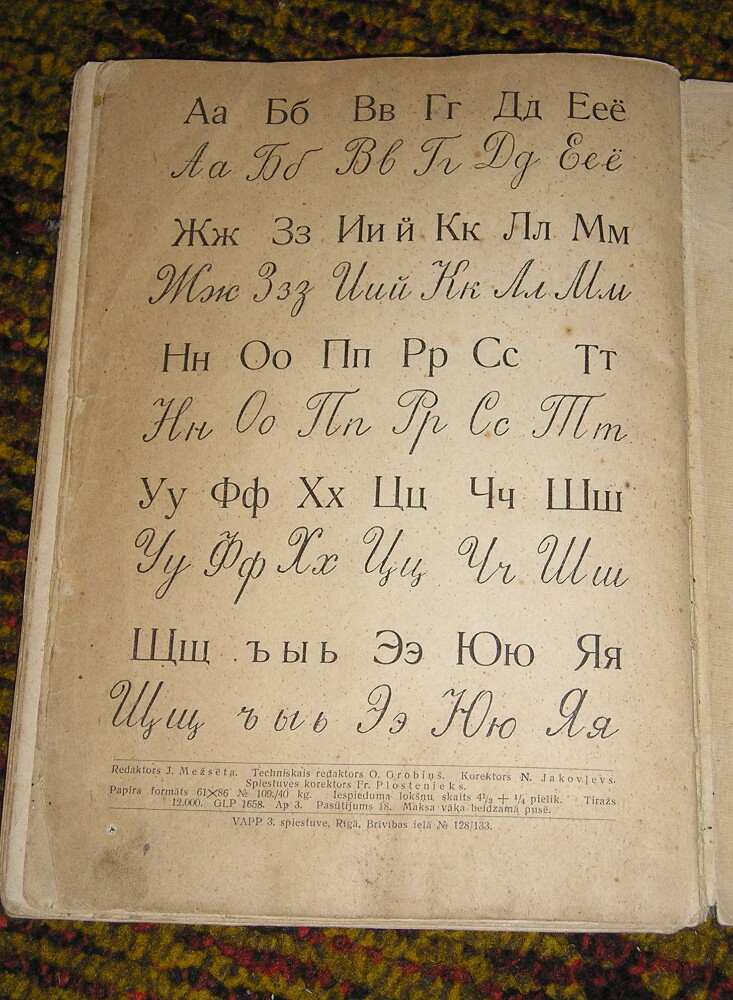 Аа Бб Вв Гг Дд Еeё
Аа Бб Вв Гг Дд Еeё
Жж Зз Ии й Кк Лл Мм
Жж Ззз Иий Кк Лл Мм
Нн Оо Пп Рр Сс Тт
Нн Оо Пп Рр Сс Тт
Уу Фф Хх Цц Чч Шш
Уу Фф Хх Цц Чч Шш
Щщ ъ ы ь Ээ Юю Яя
Щщ ъ ы ь Ээ Юю Яя
Redaktors J. Mežsēta. Techniskais redaktors O. Grobiņš. Korektors N. Jakovļevs.
Spiestuves korektors Fr. Plostenieks.
Papīra formāts 61×86 № 109./40 kg. Iespieduma lokšņu skaits 4½ + ¼ pielik. Tirāžs
12.000. GLP 1658. Ap 3. Pasūtījums 18. Maksa vāka beidzamā pusē.
VAPP 3. spiestuve, Rīgā, Brīvības ielā № 128/133.